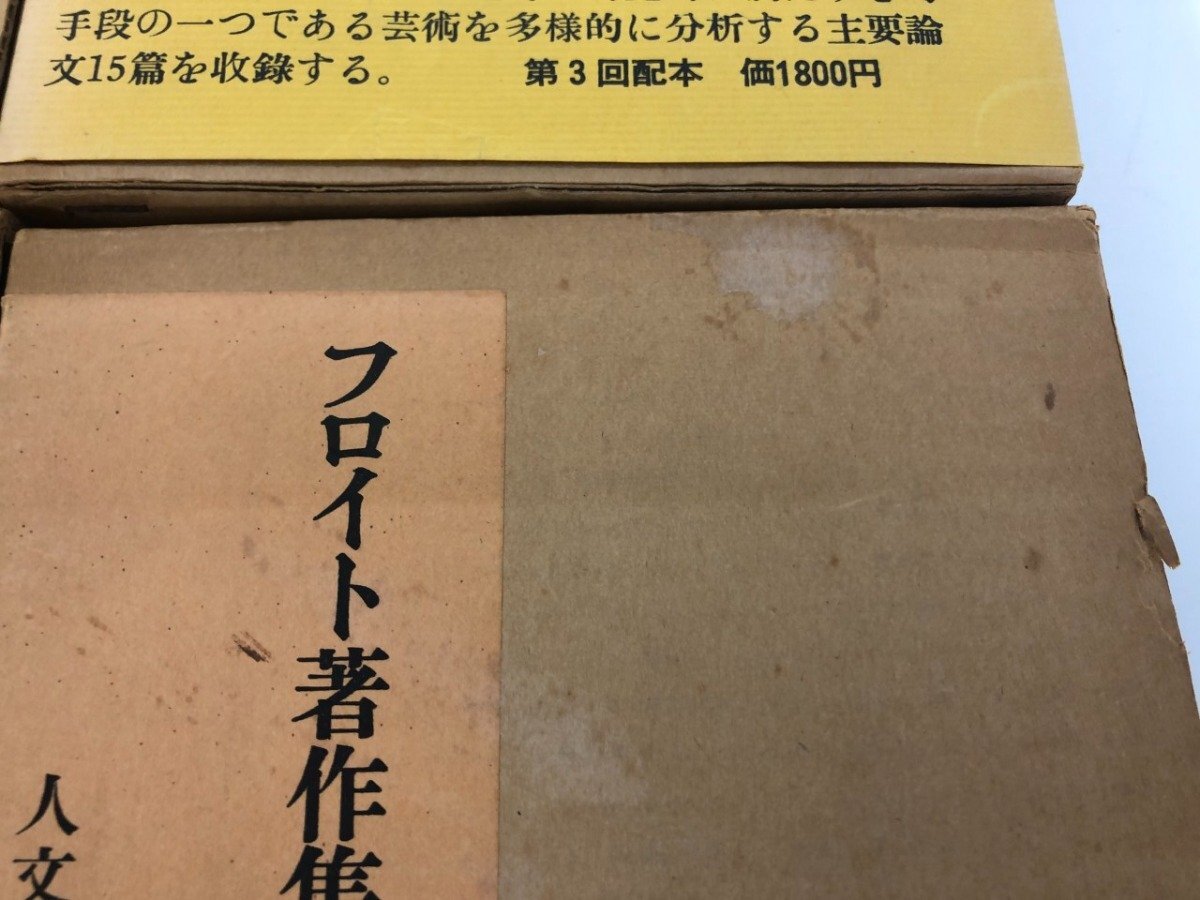 手段の一つである芸術を多様的に分析する主要論
文15篇を収録する。 第3回配本 価1800円
フロイト著作集
人文